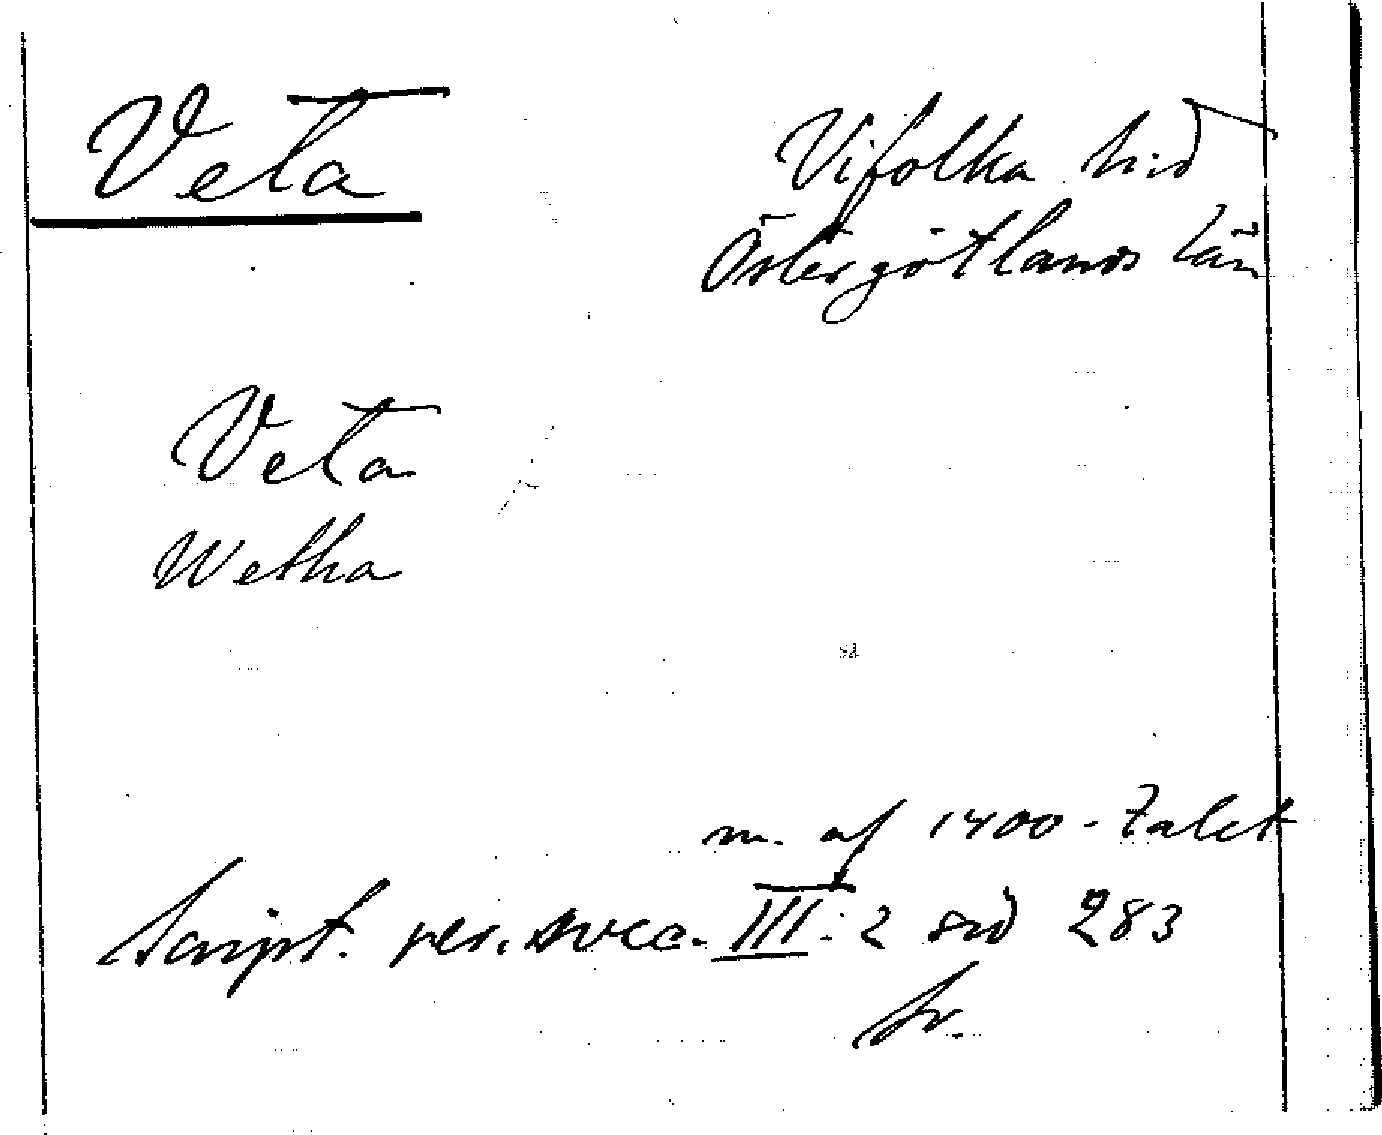 Veta
Vifolka h:d
Östergötlands län
Veta
Wetha
m. af 1400-talet
Script. rer. svec. III:2 sid 283